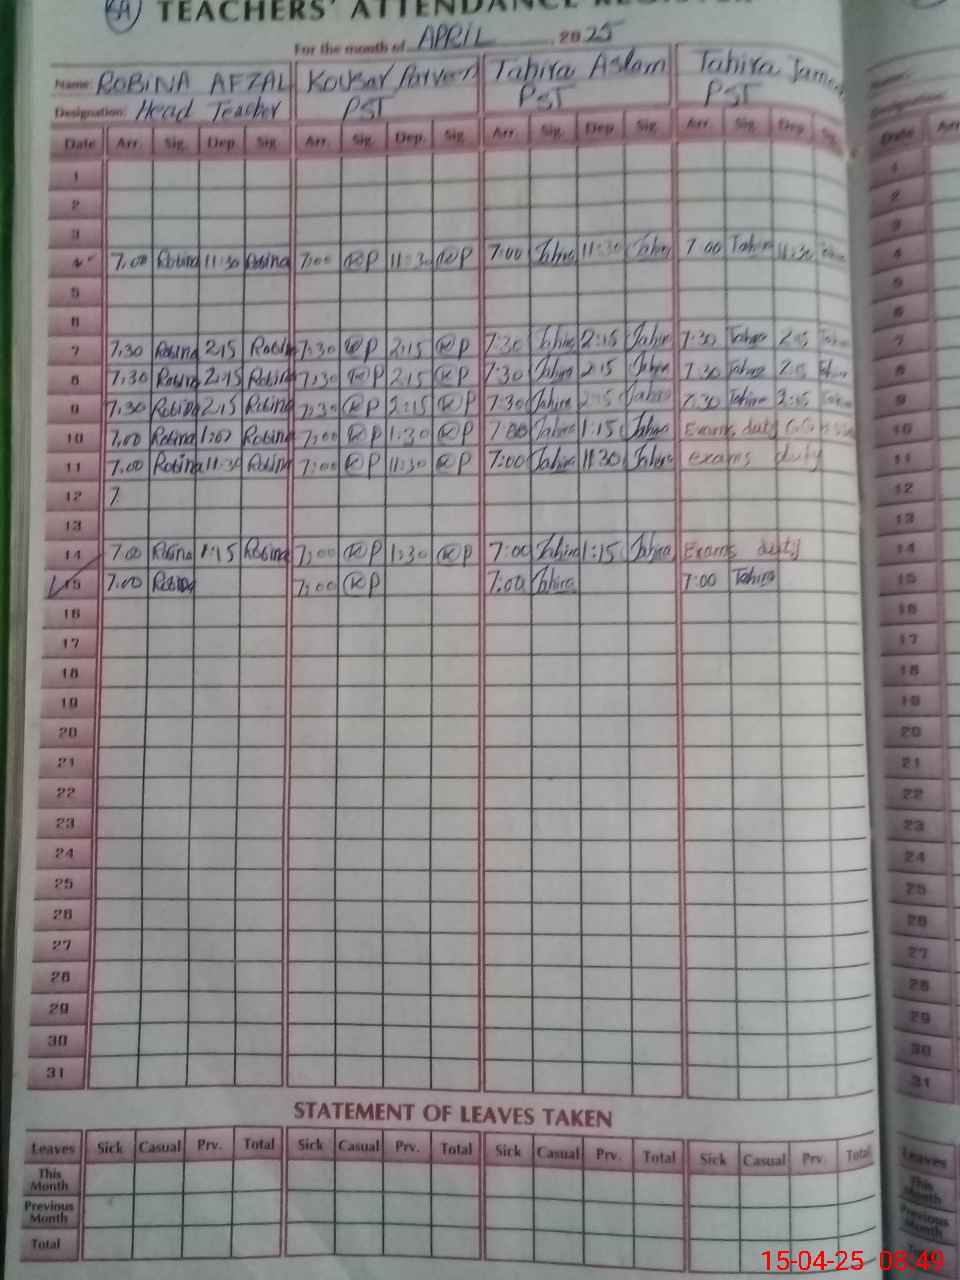 5A TEACHERS' ATTENDANCE REGISTER
For the month of APRIL 2025
Name: ROBINA AFZAL Kousar Parveen Tahira Aslam Tahira
Designation: Head Teacher PST PST PST
Date Arr. Sig. Dep. Sig Arr. Sig. Dep. Sig Arr. Sig. Dep. Sig Arr. Sig. Dep Sig.
1
2
3
4 7.00 Robina 11:30 Robina 7:00 RP 11:30 RP 7:00 Tahira 11:30 Tahira 7 00 Tahira 11:30
5
6
7 7.30 Robina 2:15 Robina 7:30 RP 2:15 RP 7:30 Tahira 2:15 Tahira 7:30 Tahira 2:15
8 7.30 Robina 2:15 Robina 7:30 RP 2:15 RP 7:30 Tahira 2:15 Tahira 7:30 Tahira 2:15
9 7.30 Robina 2:15 Robina 7:30 RP 2:15 RP 7:30 Tahira 2:15 Tahira 7:30 Tahira 2:15
10 7.00 Robina Robina 7:00 RP 1:30 RP 7:00 Tahira 1:15 Tahira Exams duty
11 7.00 Robina 11:30 Robina 7:00 RP 11:30 RP 7:00 Tahira 11:30 Tahira exams duty
12 7
13
14 7.00 Robina 1:15 Robina 7:00 RP 1:30 RP 7:00 Tahira 1:15 Tahira Exams duty
15 7.00 Robina 7:00 RP 7:00 Tahira 7:00 Tahira
16
17
18
19
20
21
22
23
24
25
26
27
28
29
30
31
STATEMENT OF LEAVES TAKEN
Leaves Sick Casual Prv. Total Sick Casual Prv. Total Sick Casual Prv. Total Sick Casual Prv. Total
This
Month
Previous
Month
Total
Date Arr
1
2
3
4
5
6
7
8
9
10
11
12
13
14
15
16
17
18
19
20
21
22
23
24
25
26
27
28
29
30
31
Leaves
This
Month
Previous
Month
15-04-25 08:49